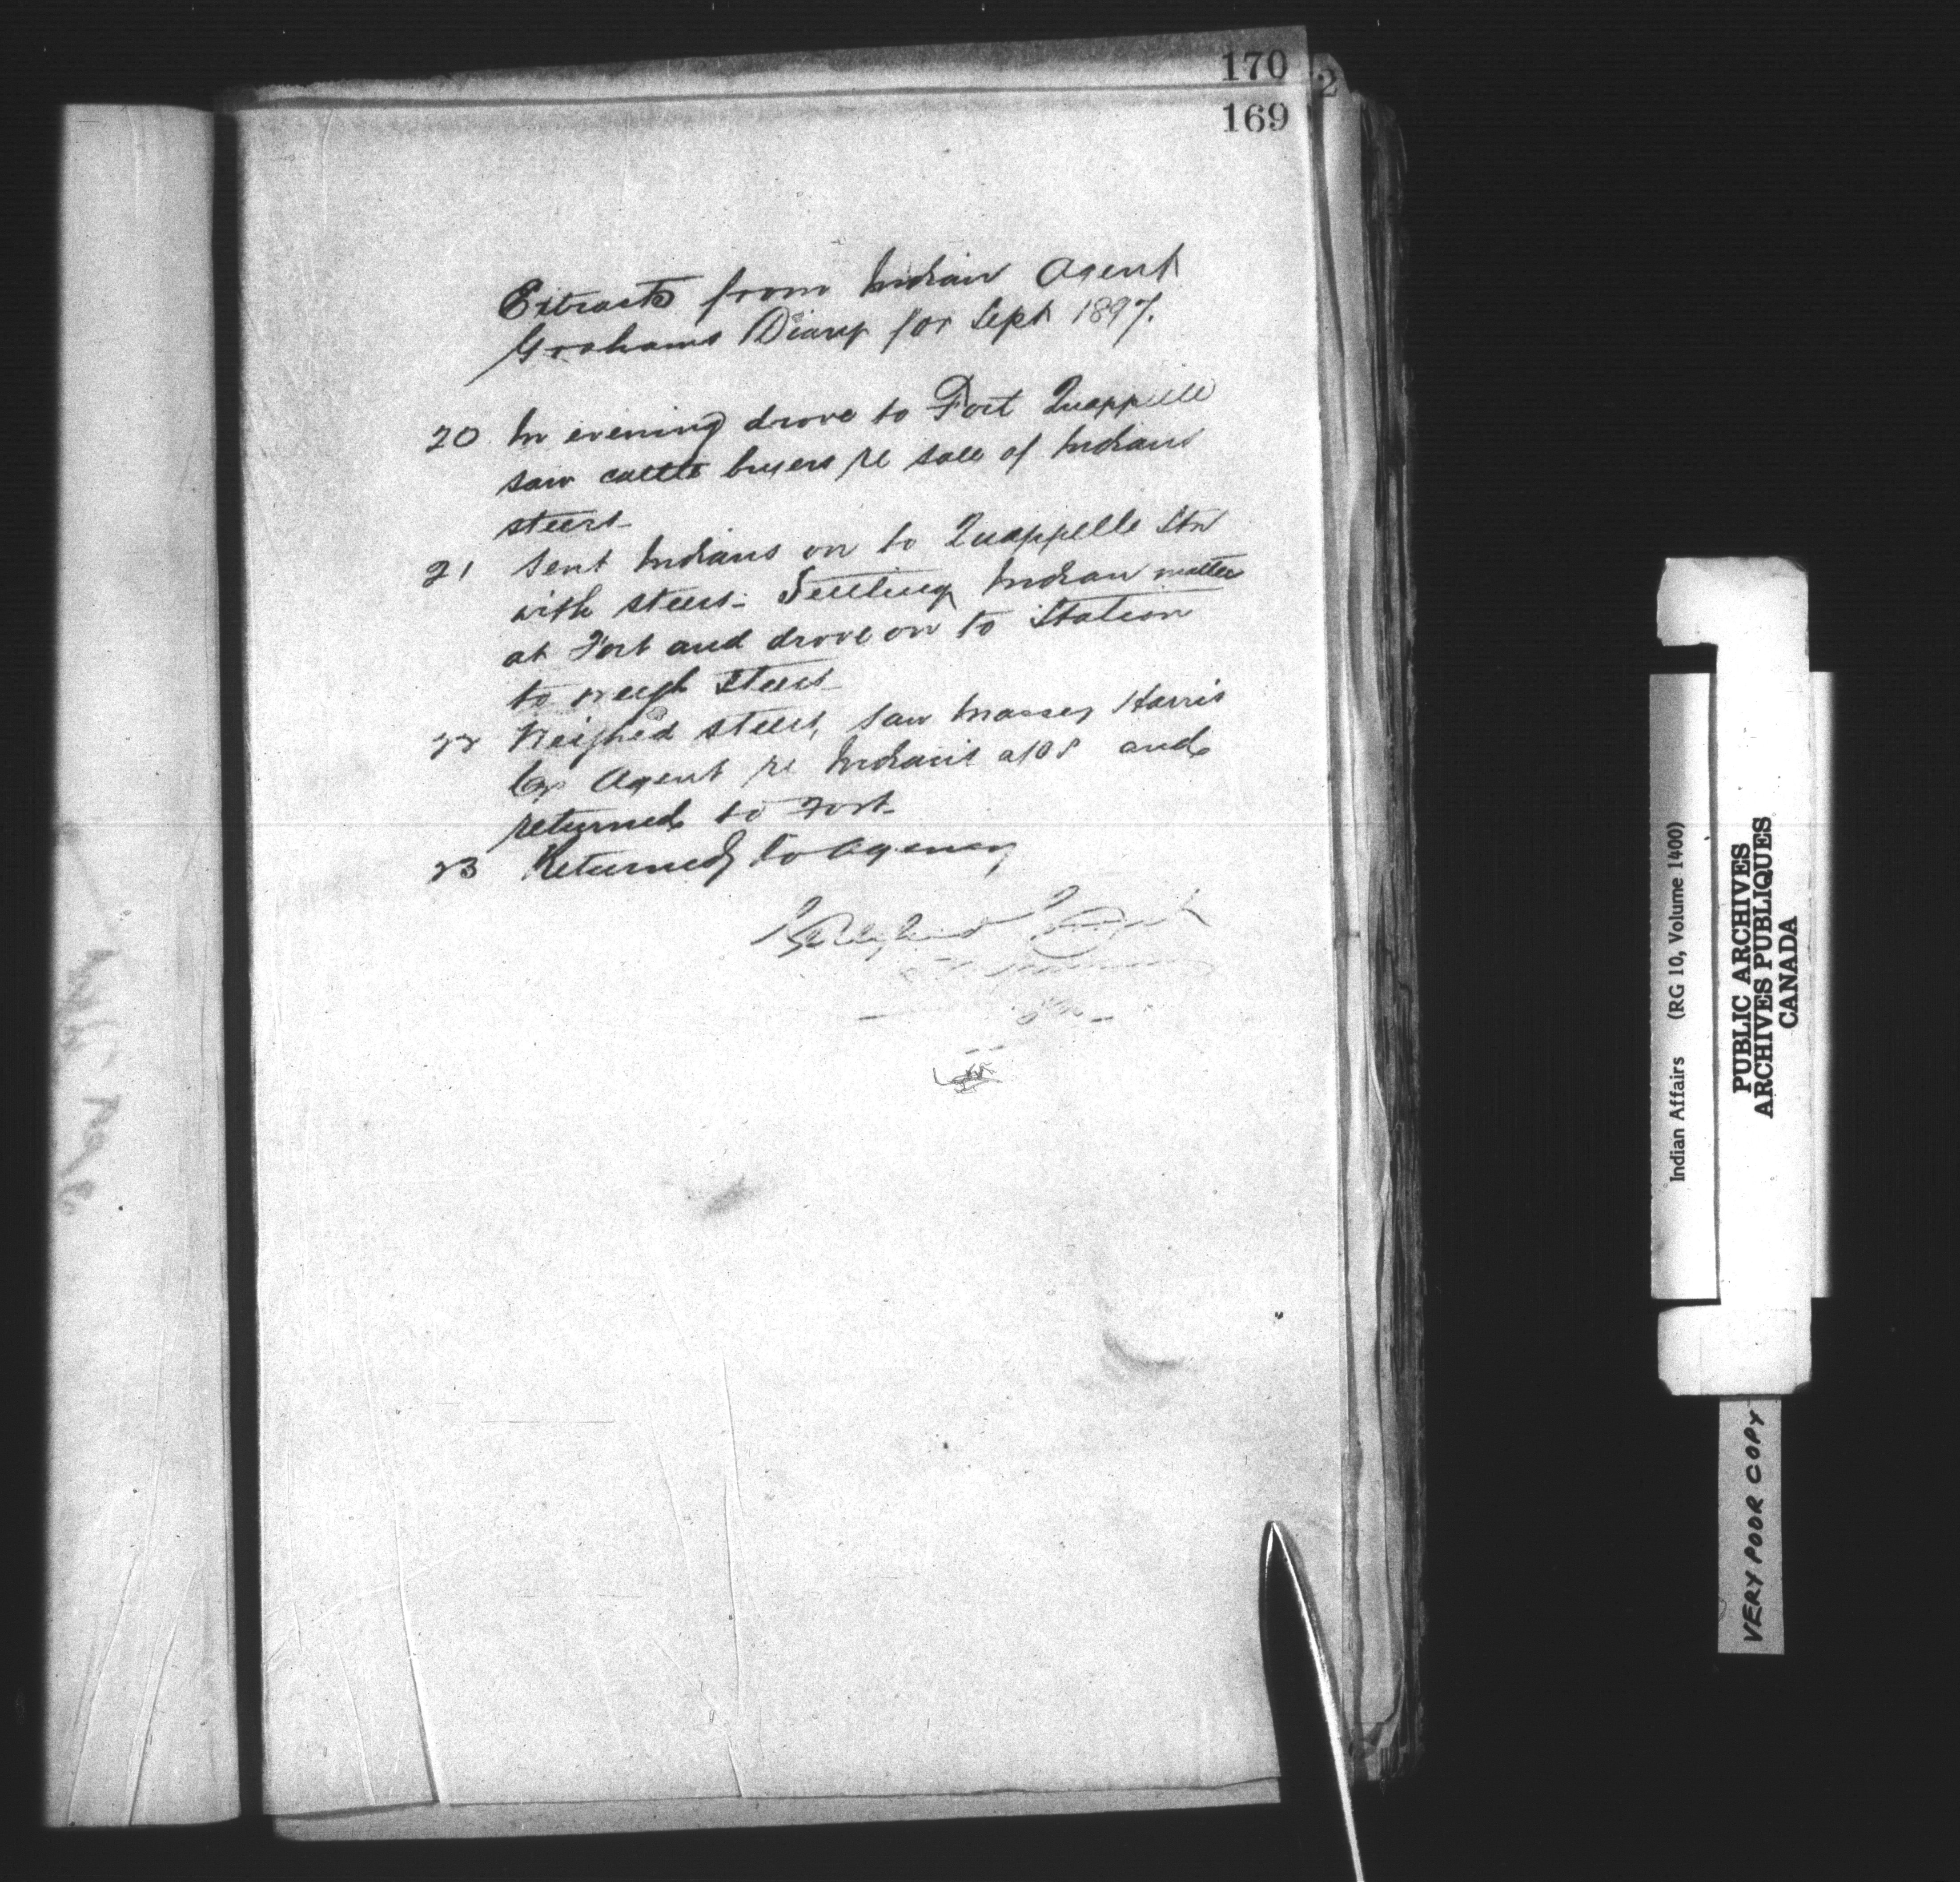 170
2
169
Extracts from Indian Agent
Grahams Diary for Sept 1897.
20 In evening drove to Fort Quappelle
saw cattle buyers re sale of Indians
steers
21 Sent Indians on to Quappelle Stn
with steers. Settling Indian matter
at Fort and drove on to Station
to weigh steers
22 Weighed steers, saw Massey Harris
Co Agent re Indians a/cs and
returned to Fort.
23 Returned to Agency
Indian Affairs (RG 10, Volume 1400)
PUBLIC ARCHIVES
ARCHIVES PUBLIQUES
CANADA
VERY POOR COPY